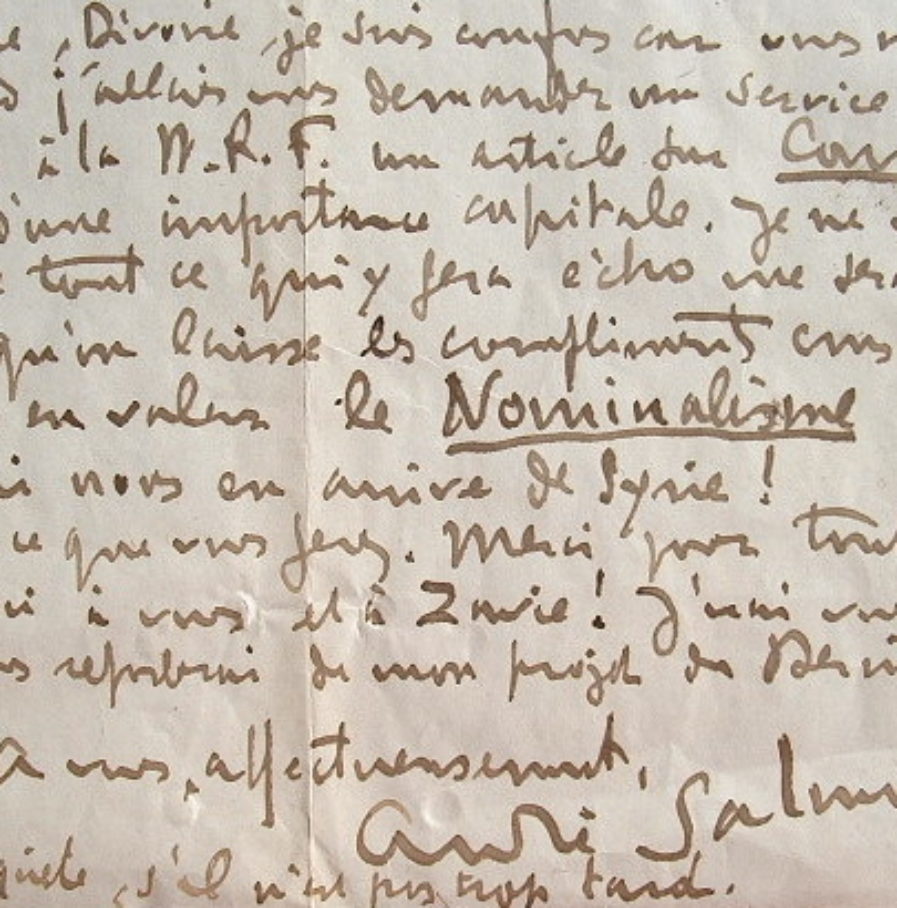 , Divoire, je suis confus car vous
j'allais vous demander un service
à la N.R.F. un article sur Car
d'une importance capitale. Je ne
tout ce qui y fera écho me sera
qu'on laisse les compliments mais
en valeur le Nominalisme
nous en arrive de Syrie !
ce que vous ferez. Merci pour tout
à vous et à Zavie ! J'irai vous
reparlerai de mon projet du
A vous, affectueusement,
André Salmon
s'il n'est pas trop tard.